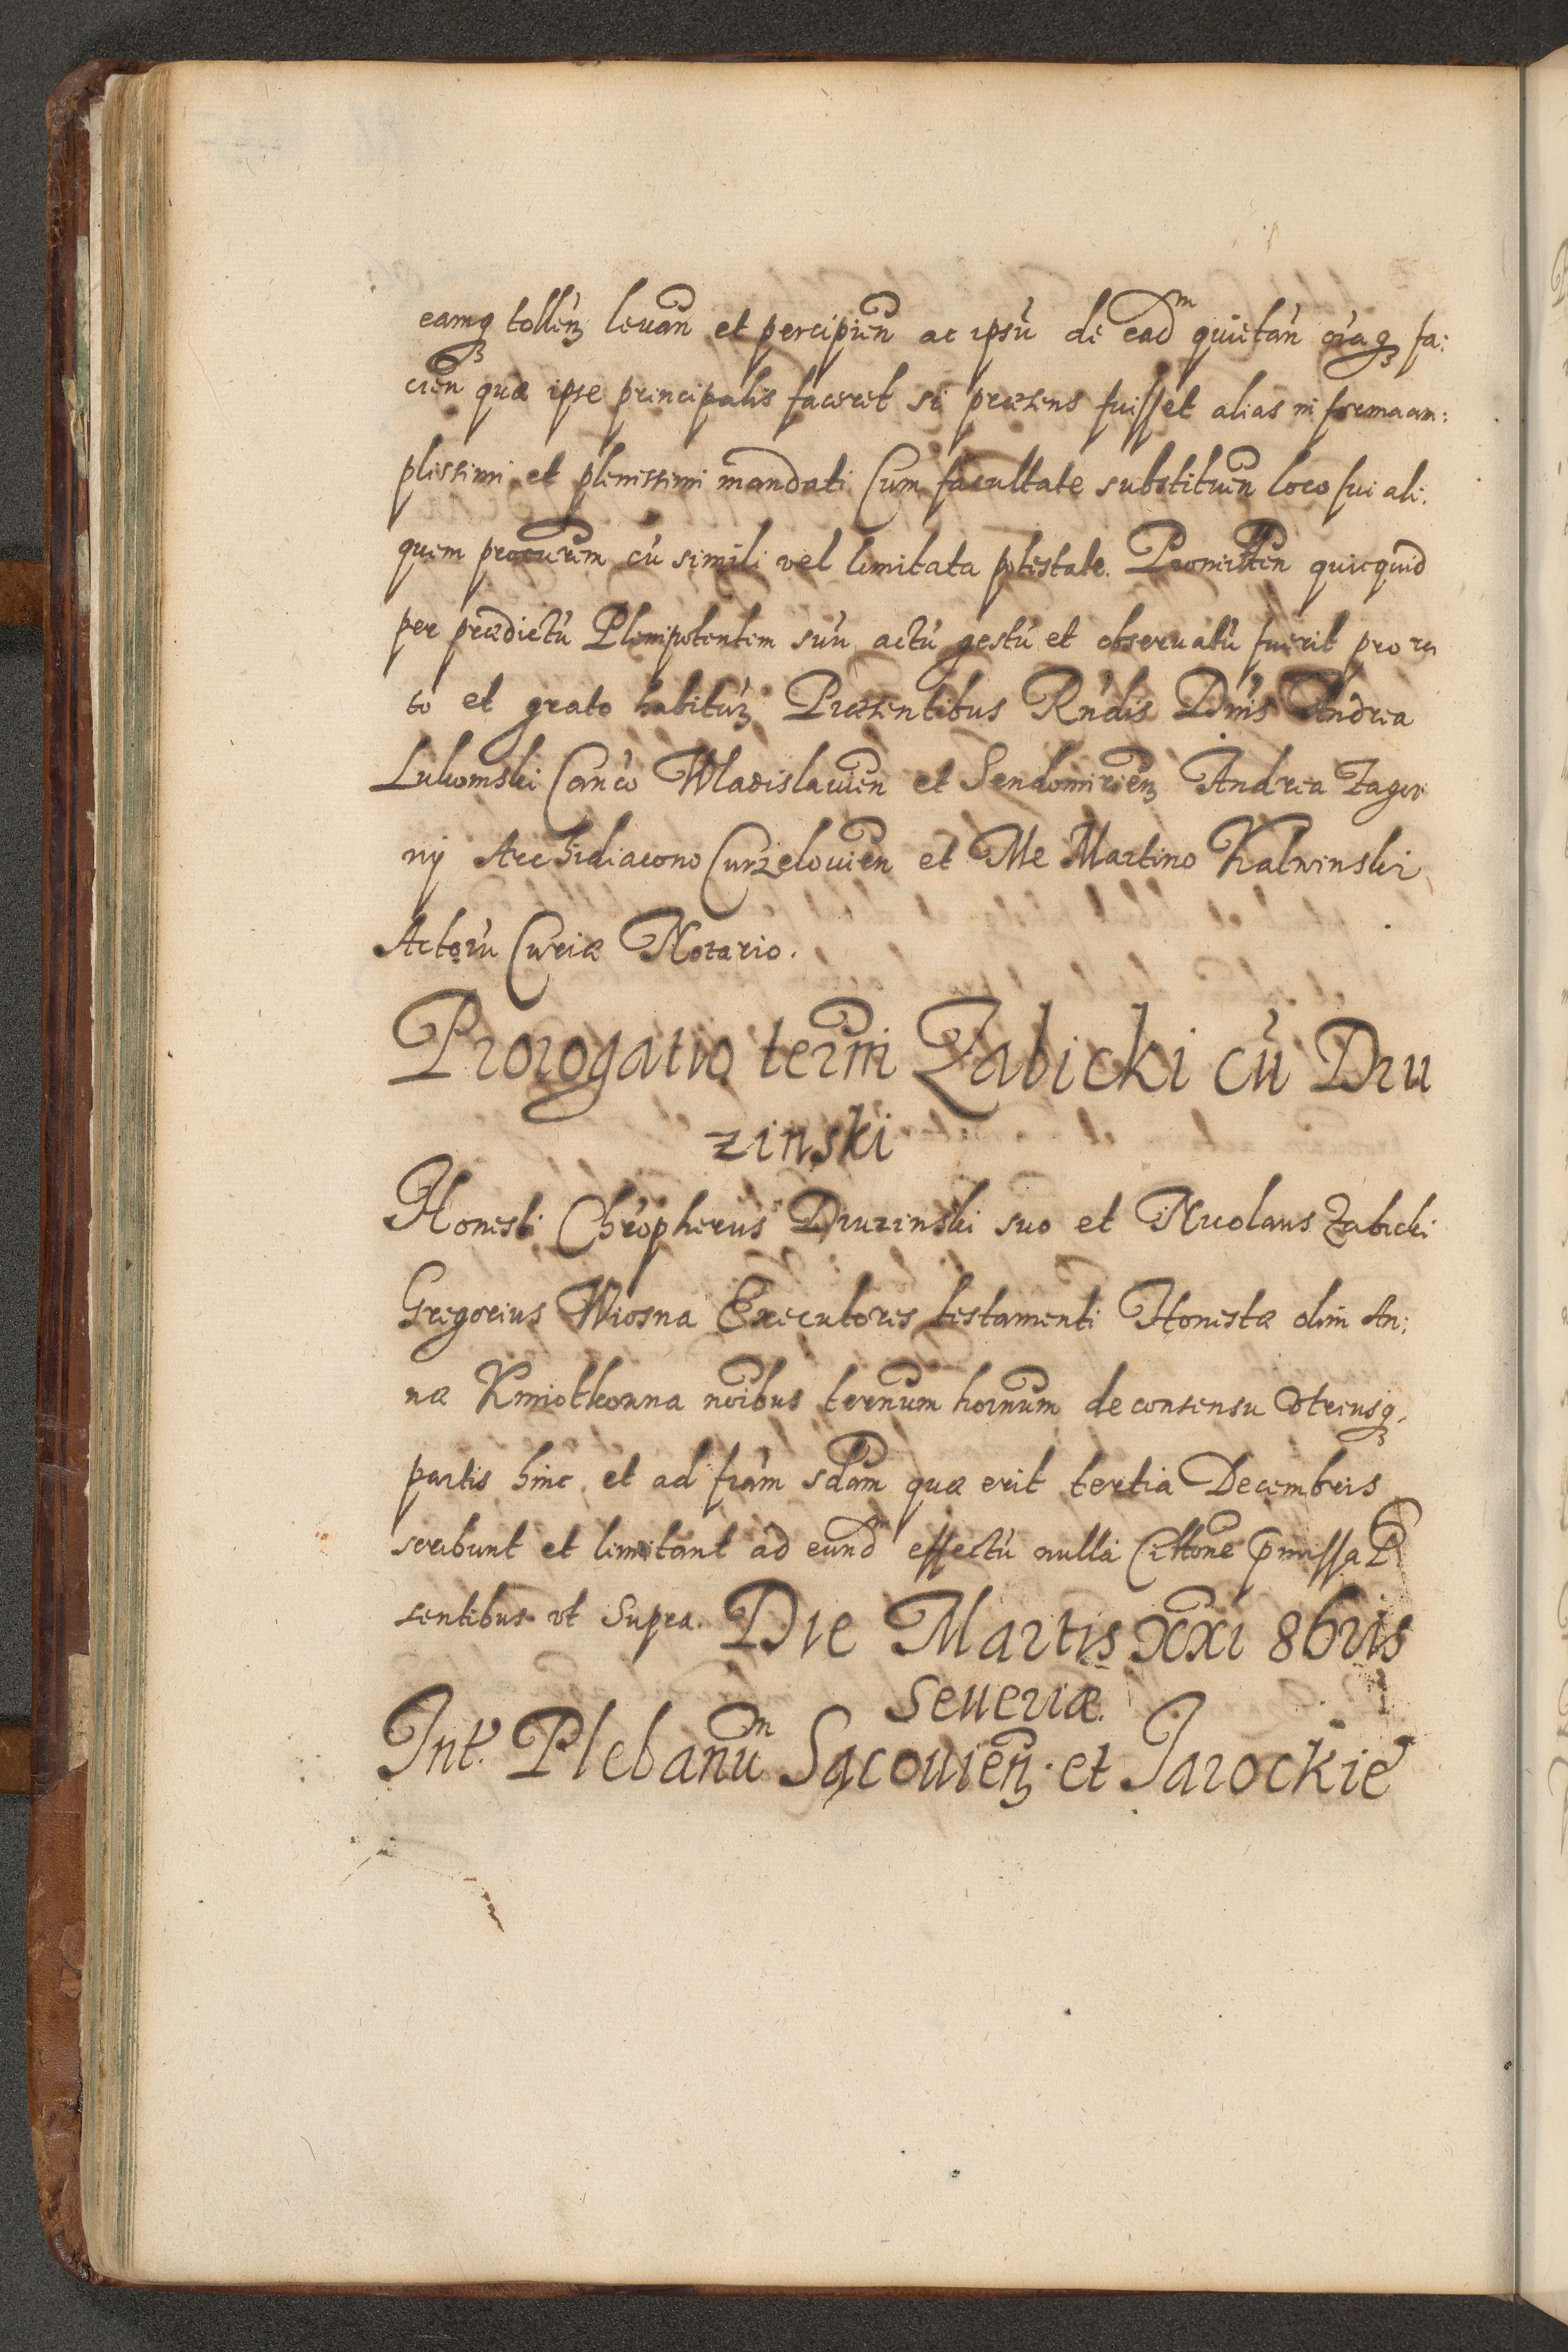 eamqꝫ tollenꝫ levan̄ et percipien̄ ac ipsū de eadᵐ quietan̄ oīaqꝫ fa:
cien̄ quæ ipse principalis faceret si præsens fuisset alias in forma am:
plissimi et plenissimi mandati Cum facultate substituen̄ loco sui ali:
quem procurem cū simili vel limitata potestate. Promitten̄ quicquid
per prædictū Plenipotentem suū actū gestū et obseruatū fuerit pro ra
to et grato habitūꝫ Præsentibus Rndis Dnis Andrea
Lukomski Canco Wladislauien̄ et Sendomirienꝫ Andrea Zagor
ny Archidiacono Curzelouien̄ et Me Martino Kalwinski
Actorū Curiæ Notario.
Prorogatio termi Zabicki cū Dru
zinski
Honesti Chropherus Druzinski suo et Nicolaus Zabicki
Gregorius Wiosna Executores testamenti Honestæ olim An:
næ Kmiotkowna noibus ternum hornum de consensu vtriusqꝫ
partis hinc et ad fram sdam quæ erit tertia Decembris
scribunt et limitant ad eundᵐ effectū nulla Cittone pmissa P
sentibus vt supra. Die Martis xxi 8bris
Seueriæ.
Int. Plebanuᵐ Sącouienꝫ et Jarockie